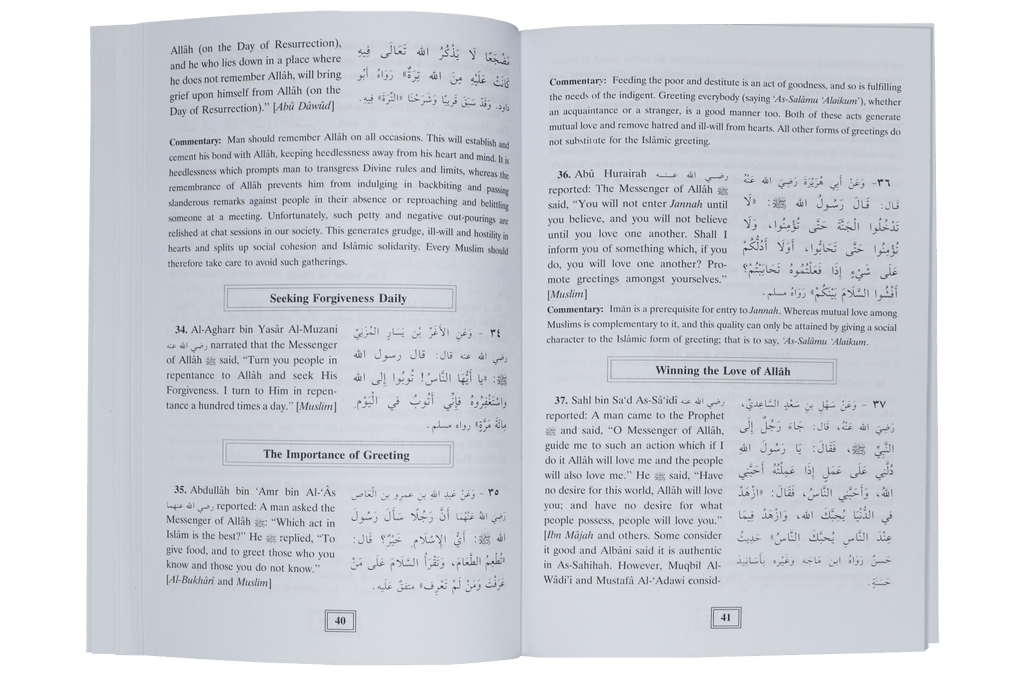 Allâh (on the Day of Resurrection),
and he who lies down in a place where
he does not remember Allâh, will bring
grief upon himself from Allâh (on the
Day of Resurrection).” [Abû Dâwûd]
مَضْجَعًا لَا يَذْكُرُ اللهَ تَعَالَى فِيهِ
كَانَتْ عَلَيْهِ مِنَ اللهِ تِرَةٌ» رَوَاهُ أَبُو
داود. وَقَدْ سَبَقَ قَرِيبًا وَشَرَحْنَا «التِّرَةَ» فِيهِ.
Commentary: Man should remember Allâh on all occasions. This will establish and
cement his bond with Allâh, keeping heedlessness away from his heart and mind. It is
heedlessness which prompts man to transgress Divine rules and limits, whereas the
remembrance of Allâh prevents him from indulging in backbiting and passing
slanderous remarks against people in their absence or reproaching and belittling
someone at a meeting. Unfortunately, such petty and negative out-pourings are
relished at chat sessions in our society. This generates grudge, ill-will and hostility in
hearts and splits up social cohesion and Islâmic solidarity. Every Muslim should
therefore take care to avoid such gatherings.
Seeking Forgiveness Daily
34. Al-Agharr bin Yasâr Al-Muzani
رضي الله عنه narrated that the Messenger
of Allâh ﷺ said, “Turn you people in
repentance to Allâh and seek His
Forgiveness. I turn to Him in repen-
tance a hundred times a day.” [Muslim]
٣٤ - وَعَنِ الأَغَرِّ بْنِ يَسَارِ المُزَنِيِّ
رضي الله عنه قال: قال رسول الله
ﷺ: «يا أَيُّهَا النَّاسُ! تُوبُوا إِلَى اللهِ
وَاسْتَغْفِرُوهُ فَإِنِّي أَتُوبُ فِي الْيَوْمِ
مِائَةَ مَرَّةٍ» رواه مسلم.
The Importance of Greeting
35. Abdullâh bin ‘Amr bin Al-‘Âs
رضي الله عنهما reported: A man asked the
Messenger of Allâh ﷺ: “Which act in
Islâm is the best?” He ﷺ replied, “To
give food, and to greet those who you
know and those you do not know.”
[Al-Bukhârî and Muslim]
٣٥ - وَعَنْ عَبْدِ اللهِ بنِ عمرِو بنِ العَاصِ
رَضِيَ اللهُ عَنْهُمَا أَنَّ رَجُلًا سَأَلَ رَسُولَ
اللهِ ﷺ: أَيُّ الإِسْلَامِ خَيْرٌ؟ قَالَ:
«تُطْعِمُ الطَّعَامَ، وَتَقْرَأُ السَّلَامَ عَلَى مَنْ
عَرَفْتَ وَمَنْ لَمْ تَعْرِف» متفقٌ عليه.
40
Commentary: Feeding the poor and destitute is an act of goodness, and so is fulfilling
the needs of the indigent. Greeting everybody (saying ‘As-Salâmu ‘Alaikum’), whether
an acquaintance or a stranger, is a good manner too. Both of these acts generate
mutual love and remove hatred and ill-will from hearts. All other forms of greetings do
not substitute for the Islâmic greeting.
36. Abû Hurairah رضي الله عنه
reported: The Messenger of Allâh ﷺ
said, “You will not enter Jannah until
you believe, and you will not believe
until you love one another. Shall I
inform you of something which, if you
do, you will love one another? Pro-
mote greetings amongst yourselves.”
[Muslim]
٣٦- وَعَنْ أَبِي هُرَيْرَةَ رَضِيَ اللهُ عَنْهُ
قال: قَالَ رَسُولُ اللهِ ﷺ: «لَا
تَدْخُلُوا الْجَنَّةَ حَتَّى تُؤْمِنُوا، وَلَا
تُؤْمِنُوا حَتَّى تَحَابُّوا، أَوَلَا أَدُلُّكُمْ
عَلَى شَيْءٍ إِذَا فَعَلْتُمُوهُ تَحَابَبْتُمْ؟
أَفْشُوا السَّلَامَ بَيْنَكُمْ» رَوَاهُ مسلم.
Commentary: Imân is a prerequisite for entry to Jannah. Whereas mutual love among
Muslims is complementary to it, and this quality can only be attained by giving a social
character to the Islâmic form of greeting; that is to say, ‘As-Salâmu ‘Alaikum.
Winning the Love of Allâh
37. Sahl bin Sa‘d As-Sâ‘idî رضي الله عنه
reported: A man came to the Prophet
ﷺ and said, “O Messenger of Allâh,
guide me to such an action which if I
do it Allâh will love me and the people
will also love me.” He ﷺ said, “Have
no desire for this world, Allâh will love
you; and have no desire for what
people possess, people will love you.”
[Ibn Mâjah and others. Some consider
it good and Albâni said it is authentic
in As-Sahihah. However, Muqbil Al-
Wâdi‘i and Mustafâ Al-‘Adawi consid-
٣٧ - وَعَنْ سَهْلِ بنِ سَعْدٍ السَّاعِدِيِّ،
رَضِيَ اللهُ عَنْهُ، قال: جَاءَ رَجُلٌ إِلَى
النَّبِيِّ ﷺ، فَقَالَ: يَا رَسُولَ اللهِ
دُلَّنِي عَلَى عَمَلٍ إِذَا عَمِلْتُهُ أَحَبَّنِي
اللهُ، وَأَحَبَّنِي النَّاسُ، فَقَالَ: «ازْهَدْ
في الدُّنْيَا يُحِبَّكَ اللهُ، وَازْهَدْ فِيمَا
عِنْدَ النَّاسِ يُحِبَّكَ النَّاسُ» حَدِيثٌ
حَسَنٌ رَوَاهُ ابن ماجه وغَيْره بأسَانيدَ
حَسَنَةٍ.
41